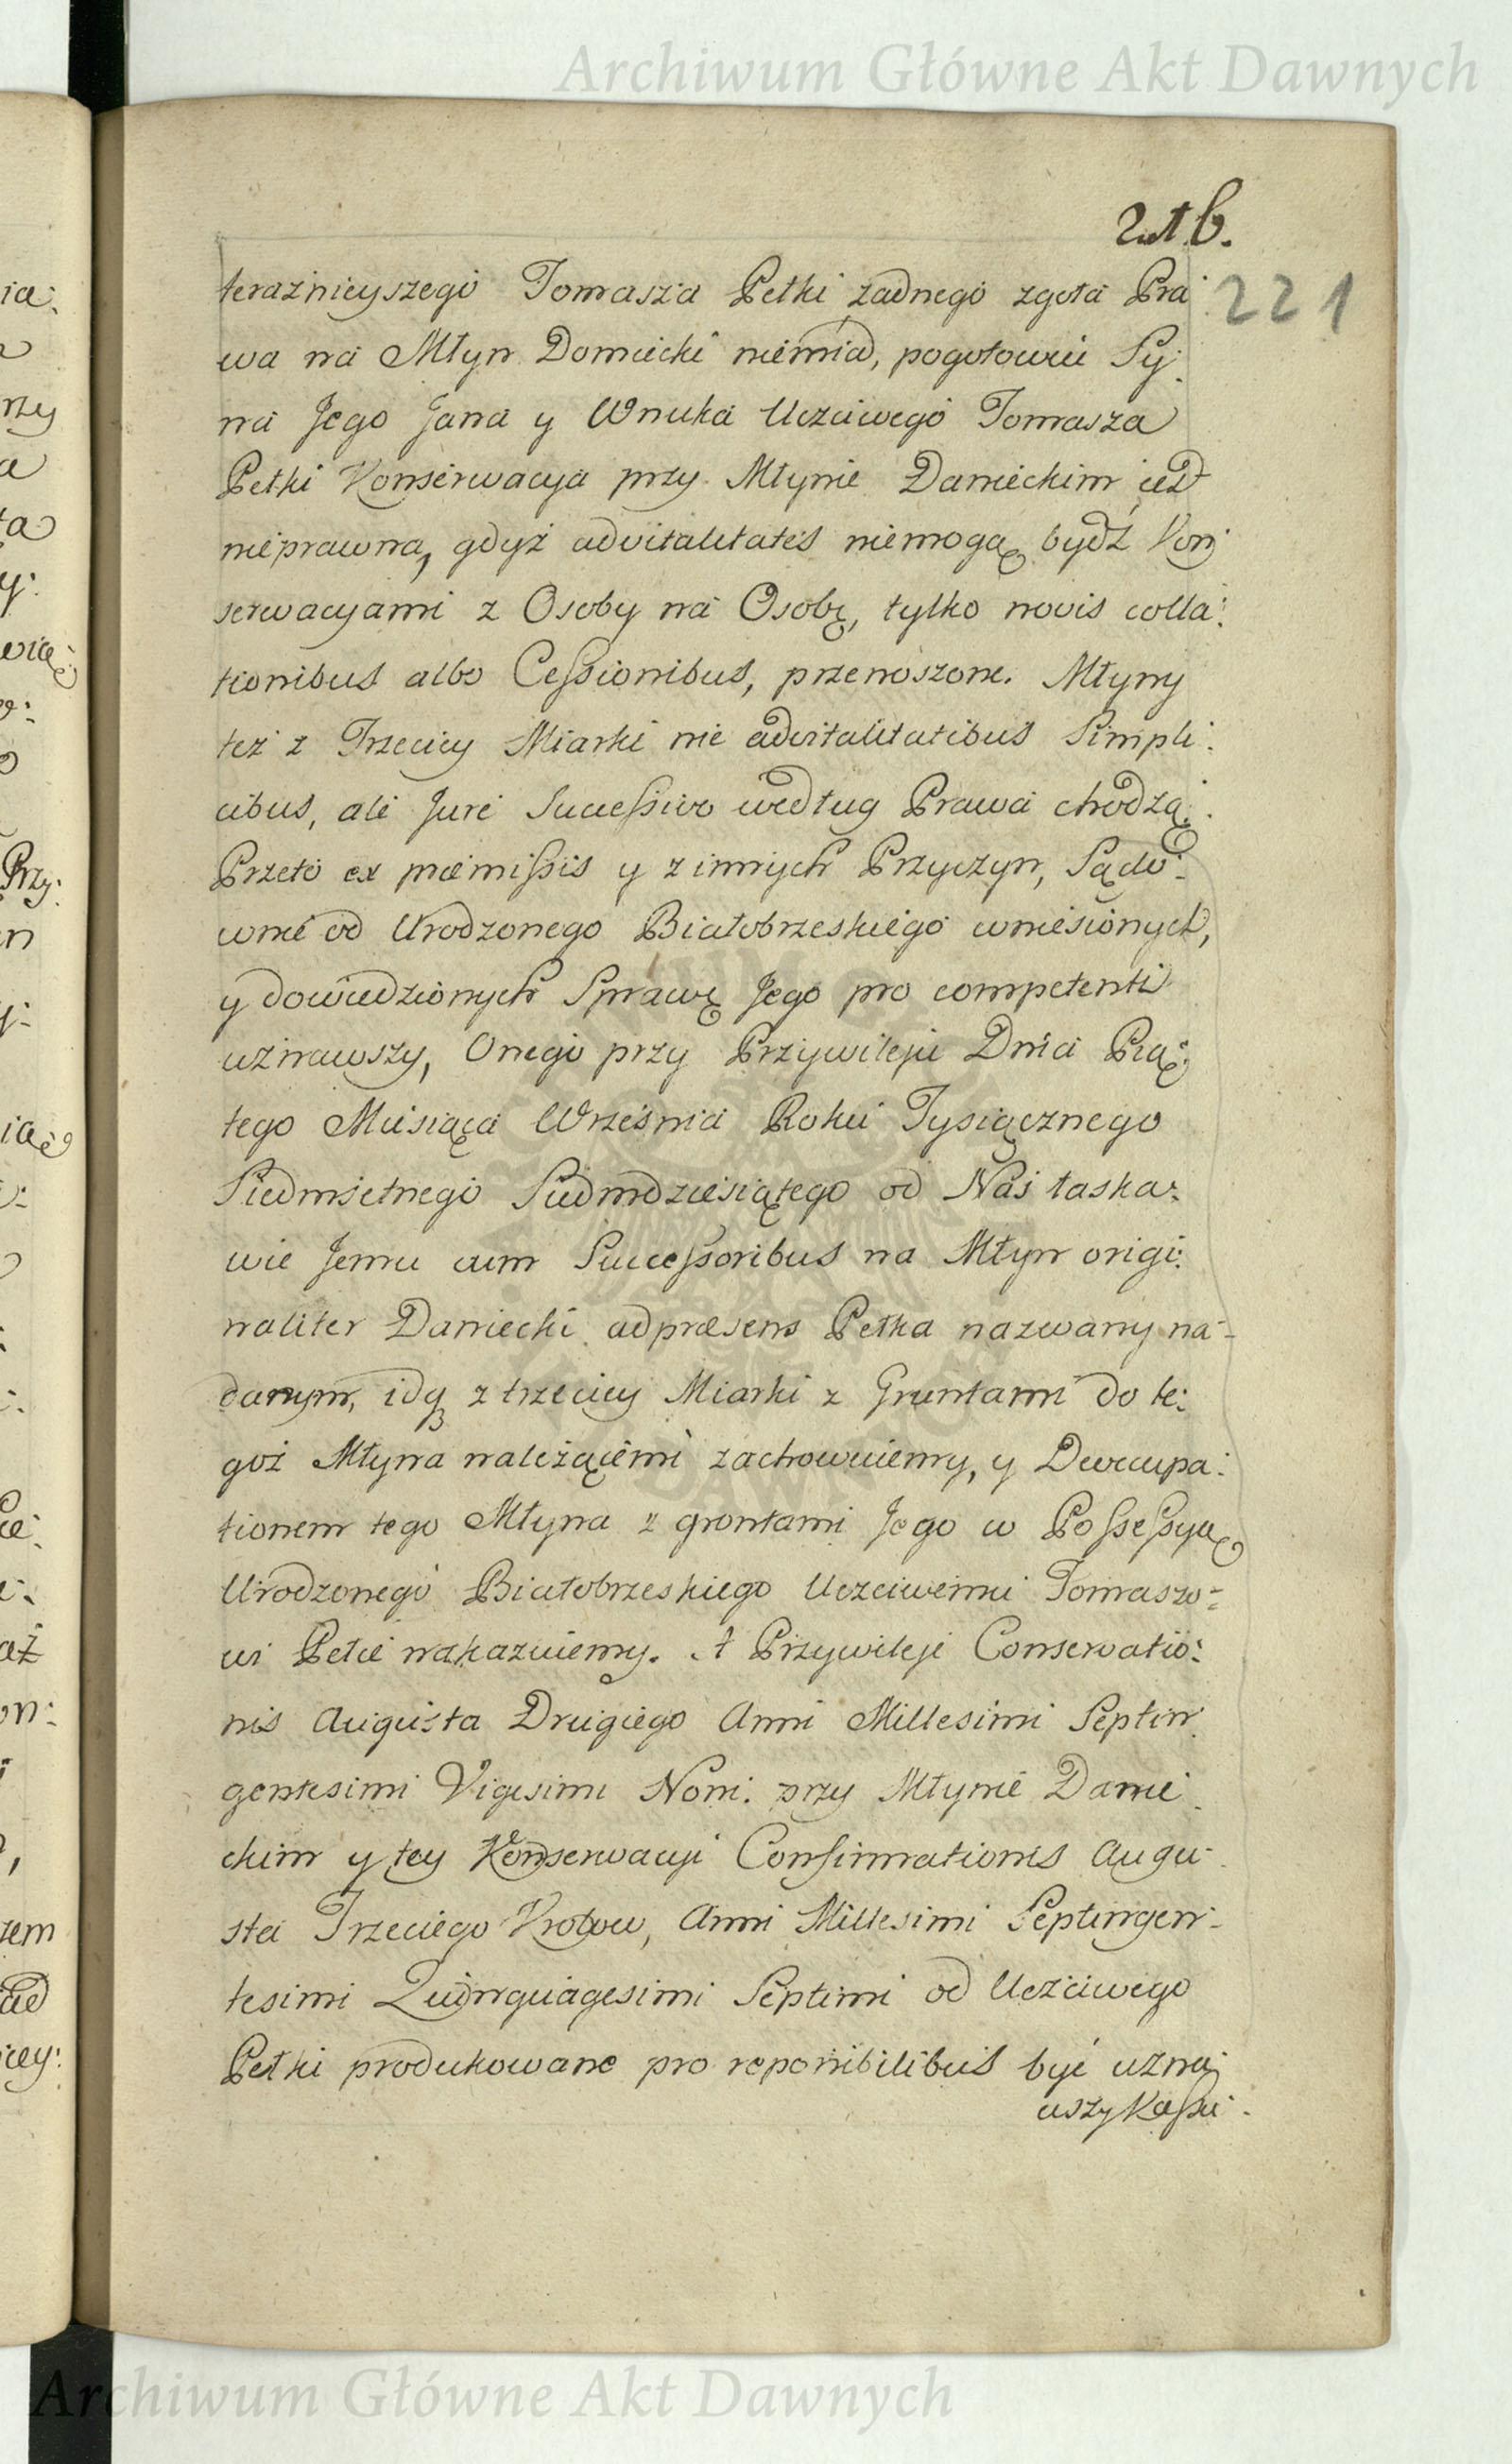 Archiwum Główne Akt Dawnych
221
teraznieyszego Tomasza Pełki żadnego zgoła Pra
wa na Młyn Domiecki niemiał, pogotowiu Sy:
na Jego Jana y Wnuka Uczciwego Tomasza
Pełki Konserwacya przy Młynie Danieckim jest
nieprawna, gdyż advitalitates niemogą bydź Kon:
serwacyami z Osoby na Osobę, tylko novis colla:
tionibus albo Cessionibus, przenoszone. Młyny
też z Trzeciey Miarki nie advitalitatibus Simpli:
cibus, ale Jure Successivo według Prawa chodzą.
Przeto ex præmissis y z innych Przyczyn, Sądo:
wnie od Urodzonego Białobrzeskiego wniesionych,
y dowiedzionych Sprawę Jego pro competenti
uznawszy, Onego przy Przywileju Dnia Pią:
tego Miesiąca Wrzesnia Roku Tysiącznego
Siedmsetnego Siedmdziesiątego od Nas łaska:
wie Jemu cum Successoribus na Młyn origi:
naliter Daniecki ad præsens Pełka nazwany na-
danym, idq z trzeciey Miarki z Gruntami do te:
goż Młyna należącemi zachowuiemy, y Deoccupa:
tionem tego Młyna z grontami Jego w Possessyą
Urodzonego Białobrzeskiego Uczciwemu Tomaszo=
wi Pełce nakazuiemy. A Przywileje Conservatio:
nis Augusta Drugiego Anni Millesimi Septin
gentesimi Vigesimi Noni. przy Młynie Danie
ckim y tey Konserwacyi Confirmationis Augu-
sta Trzeciego Krolow, Anni Millesimi Septingen-
tesimi Quinquagesimi Septimi od Uczciwego
Pełki produkowane pro reponibilibus być uzna:
wszy Kassu:
Archiwum Główne Akt Dawnych